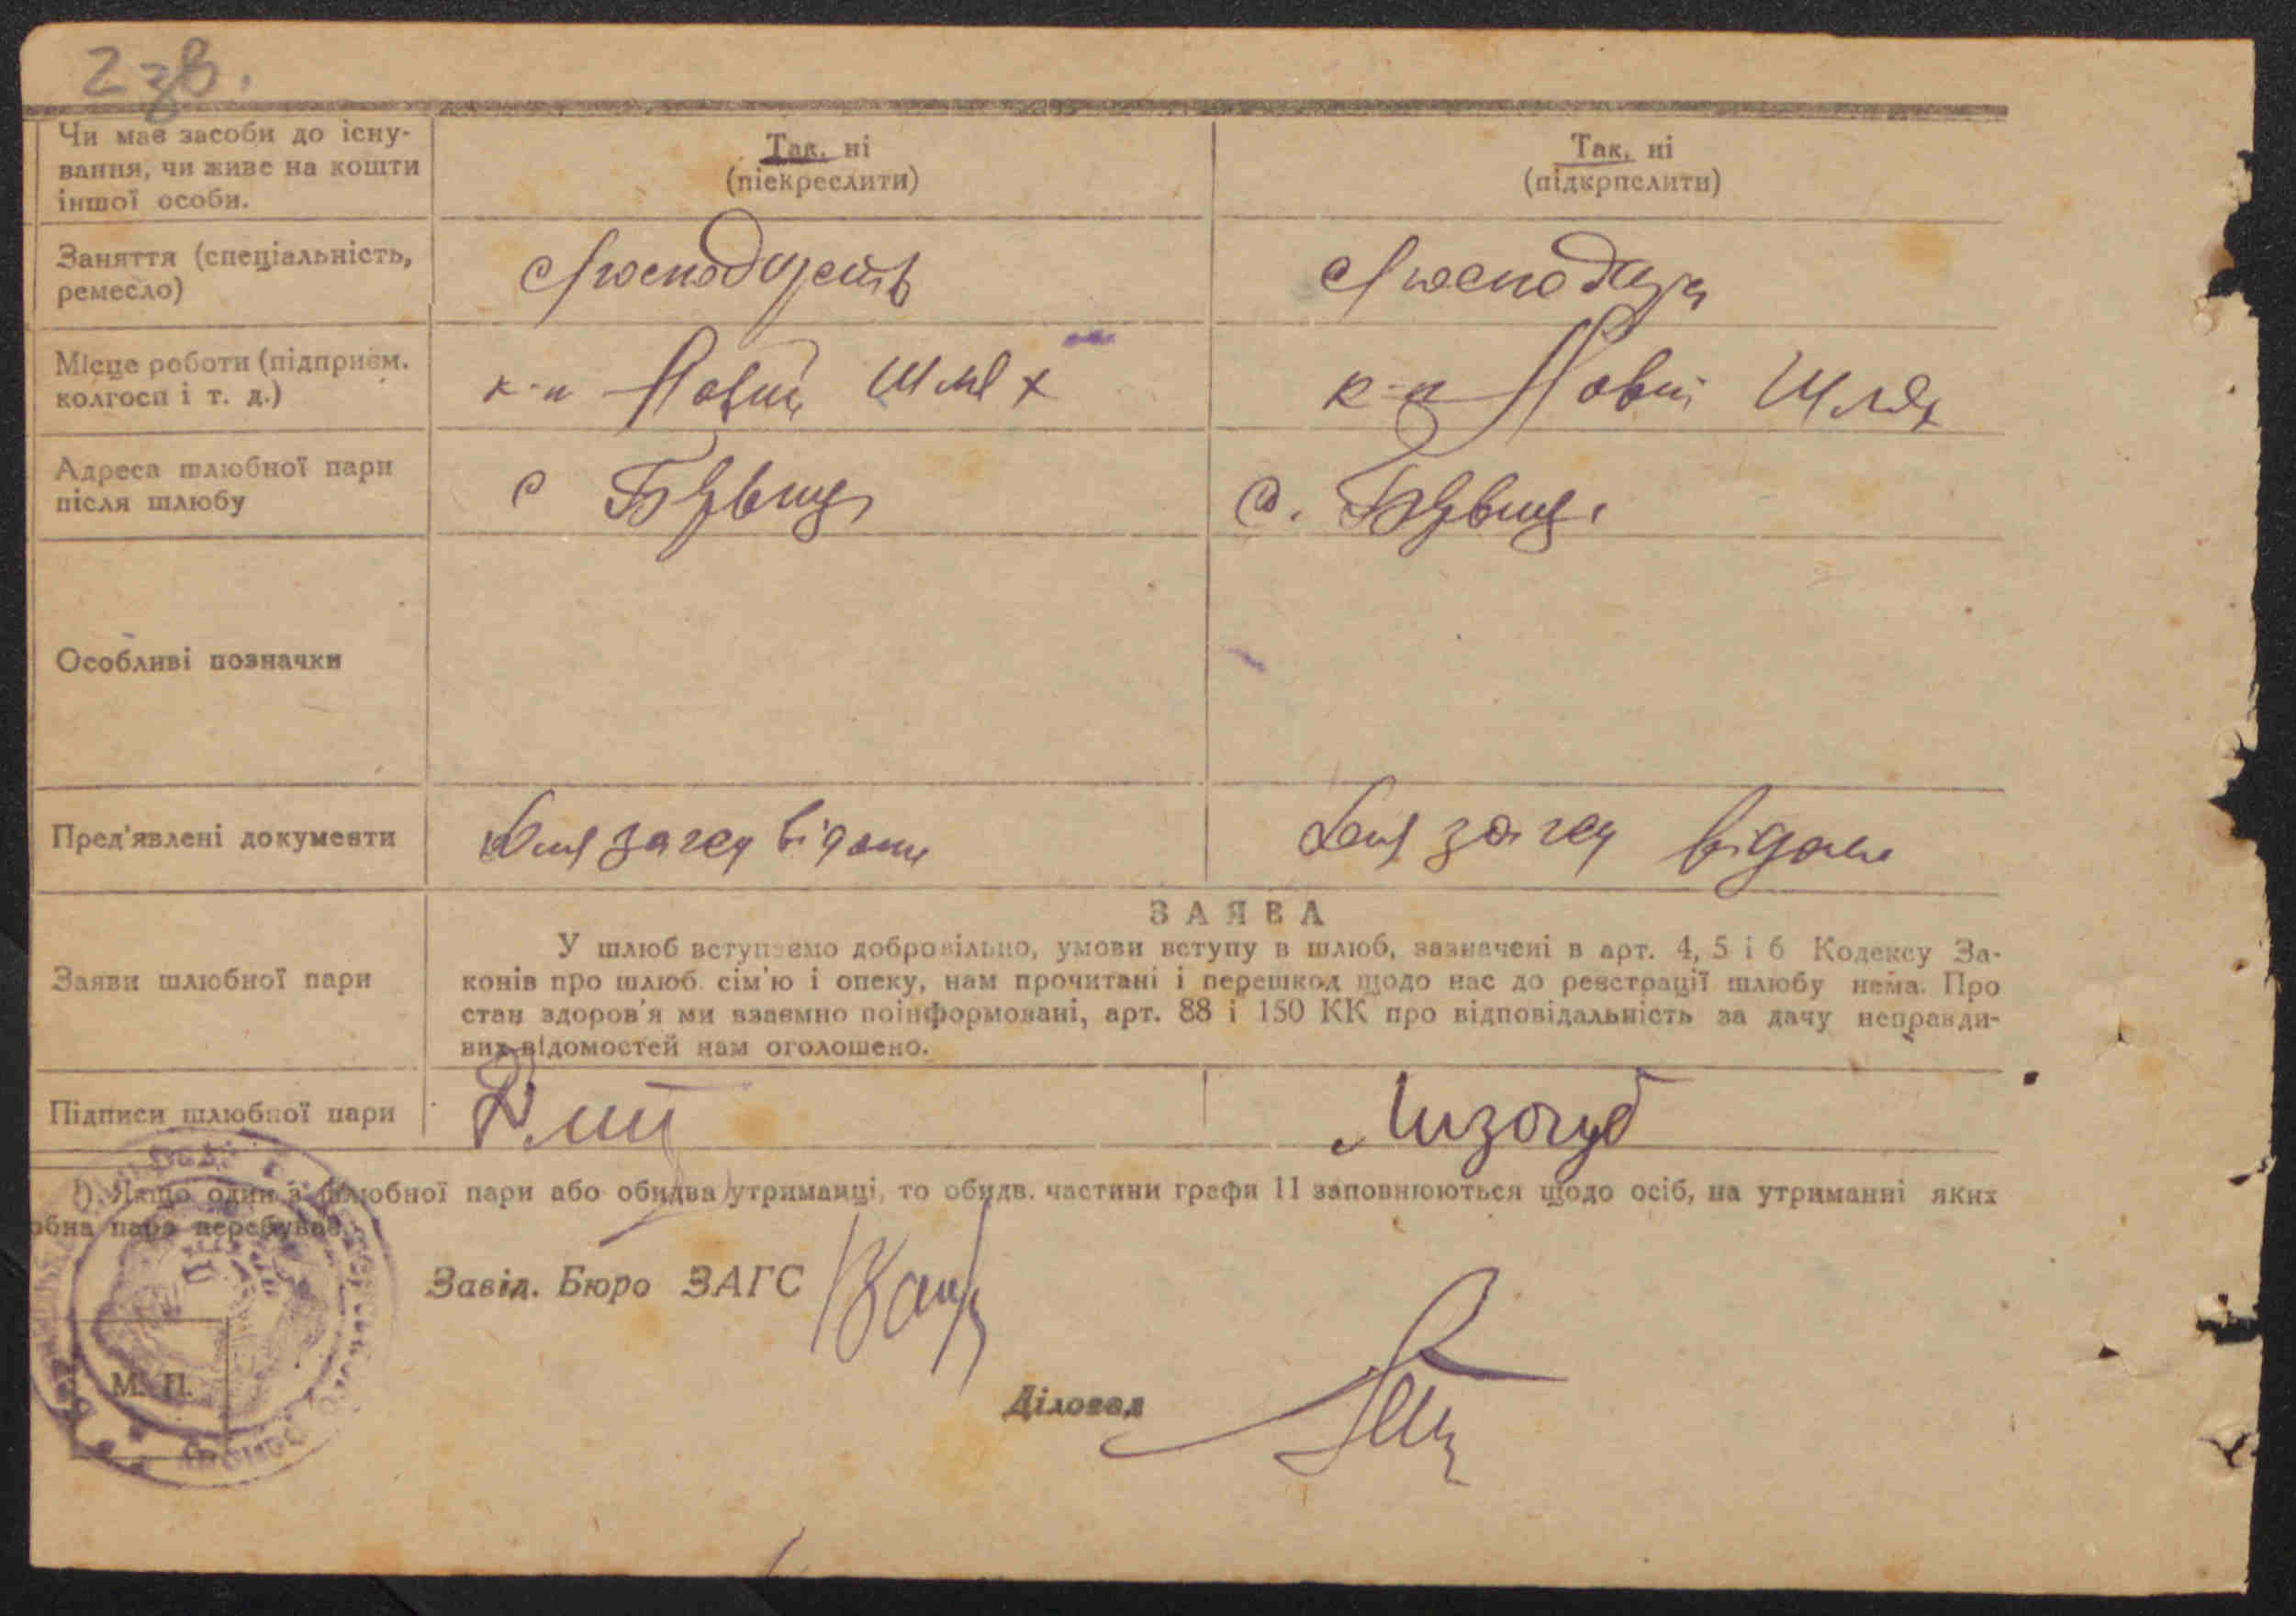 2зв.
Чи має засоби до існу-
вання, чи живе на кошти
іншої особи.
Так, ні
(піекреслити)
Так, ні
(підкрпслити)
Заняття (спеціальність,
ремесло)
Місце роботи (підприєм.
колгосп і т. д.)
к-п Новий Шлях
к-п Новий Шлях
Адреса шлюбної пари
після шлюбу
с
с.
Особливі позначки
Пред'явлені документи
Для загсу відомі
Для загсу відомі
Заяви шлюбної пари
ЗАЯВА
У шлюб вступаємо добровільно, умови вступу в шлюб, зазначені в арт. 4, 5 і 6 Кодексу За-
конів про шлюб сім'ю і опеку, нам прочитані і перешкод щодо нас до реєстрації шлюбу нема. Про
стан здоров'я ми взаємно поінформовані, арт. 88 і 150 КК про відповідальність за дачу неправди-
вих відомостей нам оголошено.
Підписи шлюбної пари
Лизогуб
1). Якщо один з шлюбної пари або обидва утриманці, то обидв. частини графи 11 заповнюються щодо осіб, на утриманні яких
обна пара перебуває.
Завід. Бюро ЗАГС
Діловод
М. П.